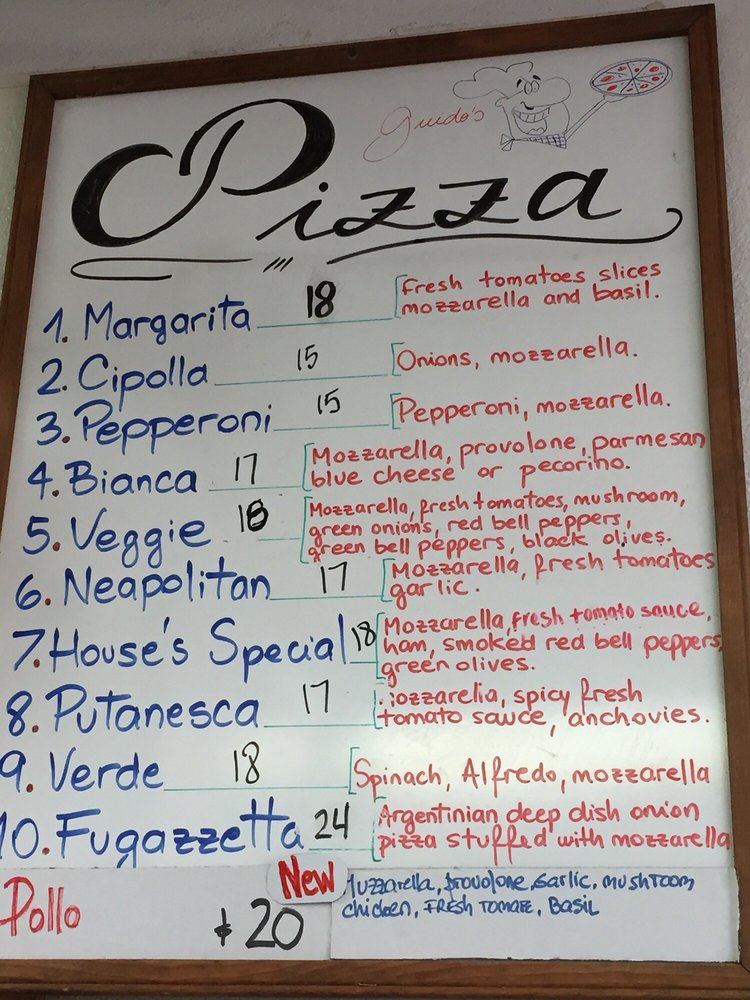 Guido's
Pizza
1. Margarita 18 Fresh tomatoes slices
mozzarella and basil.
2. Cipolla 15 Onions, mozzarella.
3. Pepperoni 15 Pepperoni, mozzarella.
4. Bianca 17 Mozzarella, provolone, parmesan
blue cheese or pecorino.
5. Veggie 18 Mozzarella, fresh tomatoes, mushroom,
green onions, red bell peppers,
green bell peppers, black olives.
6. Neapolitan 17 Mozzarella, fresh tomatoes
garlic.
7. House's Special 18 Mozzarella, fresh tomato sauce,
ham, smoked red bell peppers,
green olives.
8. Putanesca 17 Mozzarella, spicy fresh
tomato sauce, anchovies.
9. Verde 18 Spinach, Alfredo, mozzarella
10. Fugazzetta 24 Argentinian deep dish onion
pizza stuffed with mozzarella
New
Pollo $20 Muzzarella, provolone, Garlic, mushroom
chicken, FRESH TOMATE, BASIL